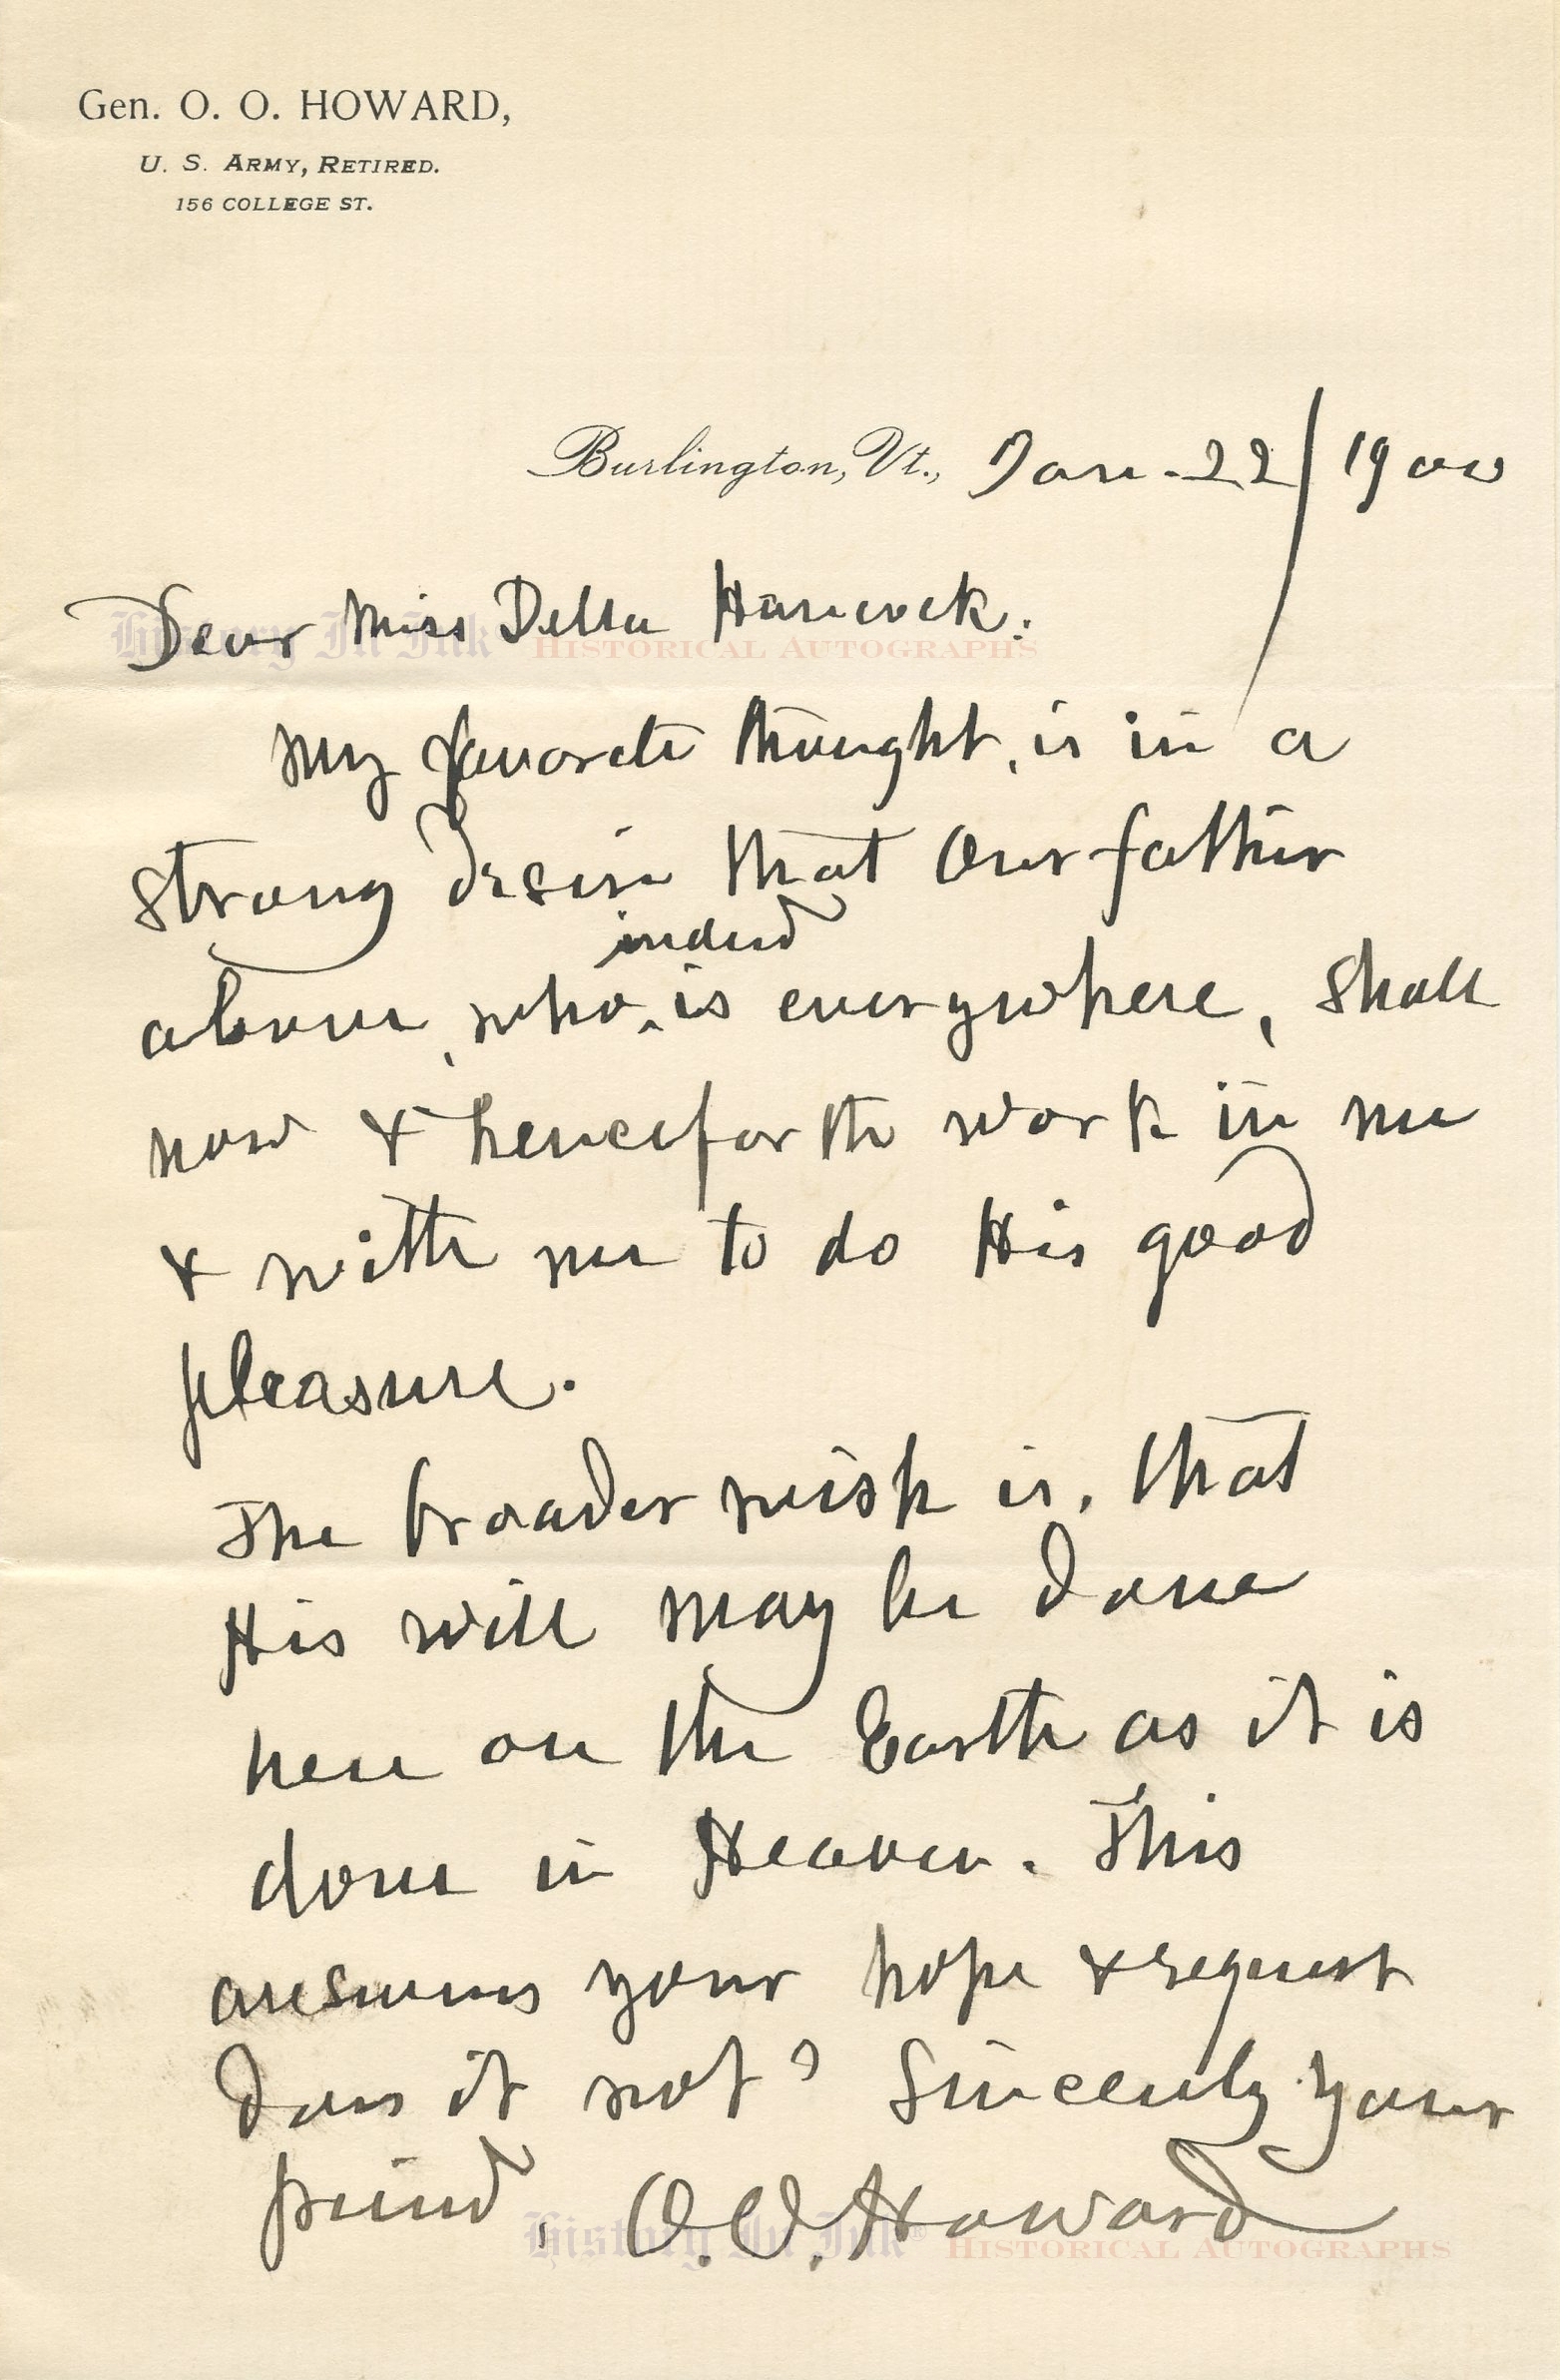 Gen. O. O. HOWARD,
U. S. ARMY, RETIRED.
156 COLLEGE ST.
Burlington, Vt., Jan. 22/1900
Dear Miss Della Hancock:
History In Ink HISTORICAL AUTOGRAPHS
My favorite thought, is in a
strong desire that Our father
indeed
above, who ^ is everywhere, shall
now & henceforth work in me
& with me to do His good
pleasure.
The broader wish is, that
His will may be done
here on the Earth as it is
done in Heaven. This
answers your hope & request
does it not? Sincerely your
friend, O. O. Howard
History In Ink® HISTORICAL AUTOGRAPHS